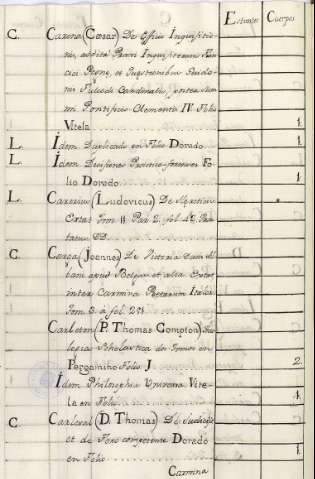 Estantes Cuerpos
C. Carena (Cæsar) De Officio Inquisitio
nis, addita Praxi Inquisitorum Fran
cisci Peñæ, et Quæstionibus Guido
nis Fulcodi Cardinalis, postea sum
mi Pontificis Clementis IV. Folio
Vitela 1.
L. Idem Duplicado en Folio Dorado 1.
L. Idem Desisiones Practico-forenses Fo
lio Dorado 1.
L. Carerius (Ludovicus) De
Tom. 11. Par. 2. fol.
C. Carga (Joannes) De Victoria
apud Belgas et alia
inter Carmina Poetarum Italor.
Tom. 3. a fol. 251
Carleton (P. Thomas Compton)
Scholastica dos Tomos en
Pergamino Folio J 2.
Idem Philosophia Universa Vite
la en Folio 1.
C. Carleval (D. Thomas) De Iudicijs
et de Foro competente Dorado
en Folio 1.
Carmina